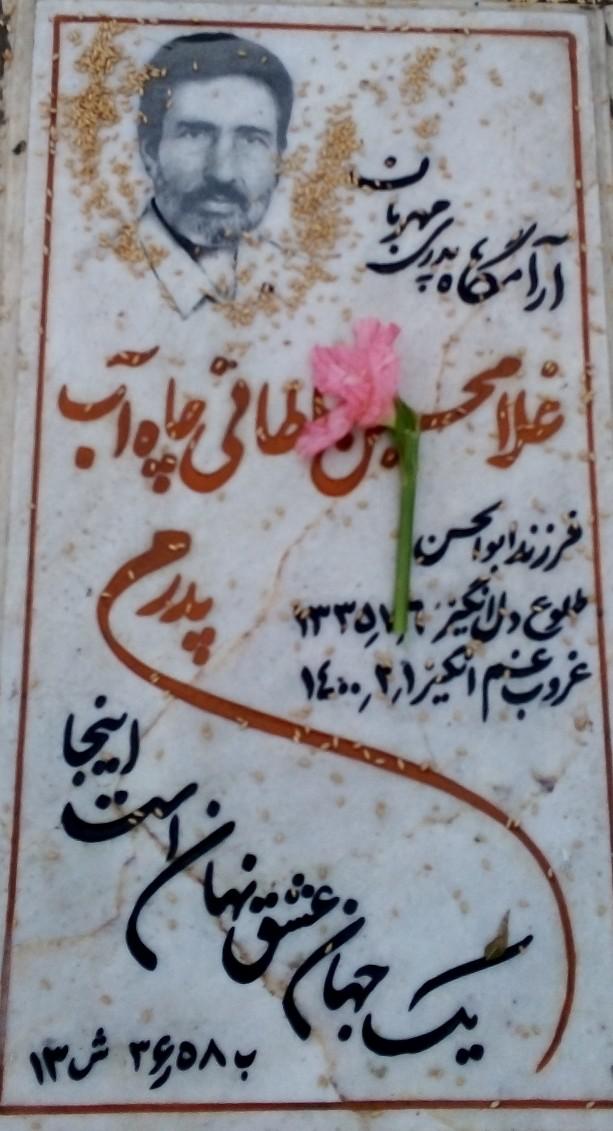 آرامگاه پدری مهربان
غلامحسین طاقی چاه آب
فرزند ابوالحسن
طلوع دل انگیز ۱۳۳۵٫۷٫۶
غروب غم انگیز ۱۴۰۰٫۲٫۱
پدرم
یک جهان عشق نهان است
اینجا
ب ۵۸ ر ۳۶ ش ۱۳